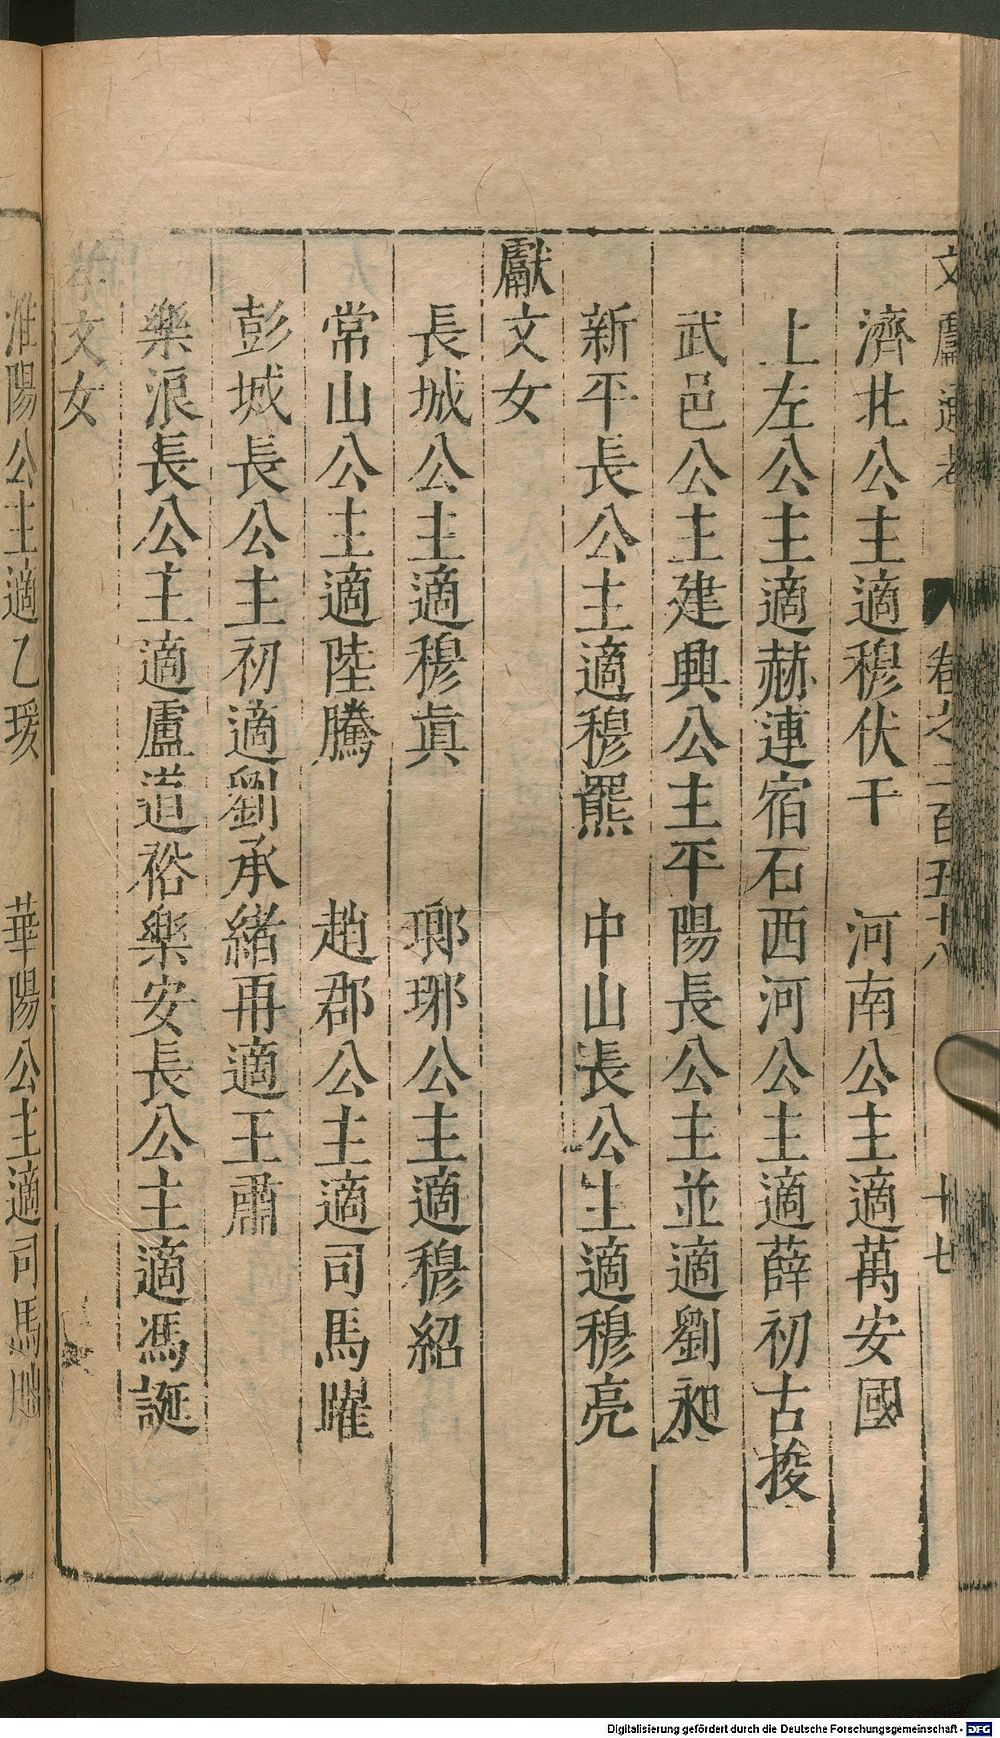 文獻通考 卷之二百五十八 卅七
濟北公主適穆伏干 河南公主適萬安國
上左公主適赫連宿石西河公主適薛初古拔
武邑公主建興公主平陽長公主並適劉昶
新平長公主適穆羆 中山長公主適穆亮
獻文女
長城公主適穆眞 瑯琊公主適穆紹
常山公主適陸騰 趙郡公主適司馬曜
彭城長公主初適劉承緒再適王肅
樂浪長公主適盧道裕樂安長公主適馮誕
孝文女
淮陽公主適乙瑗 華陽公主適司馬朏
Digitalisierung gefördert durch die Deutsche Forschungsgemeinschaft - DFG